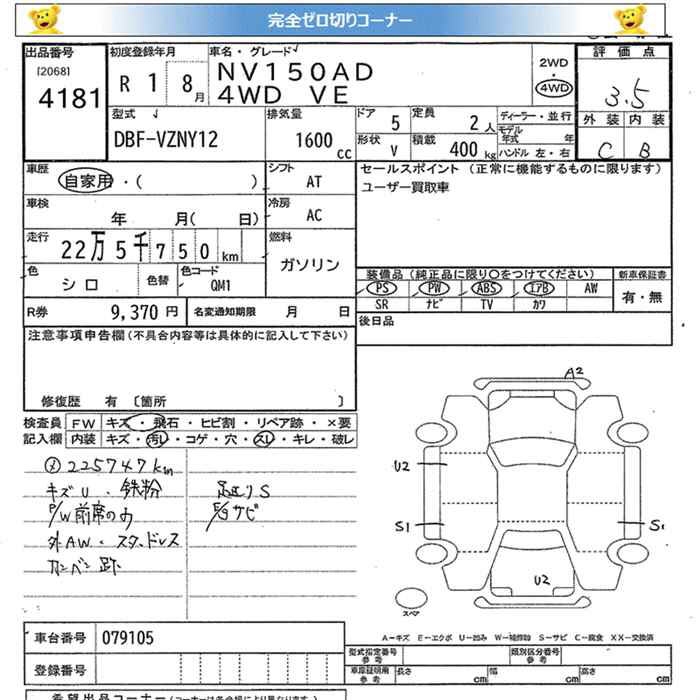 完全ゼロ切りコーナー
出品番号
[2068]
4181
初度登録年月
R 1 8月
車名・グレード
NV150AD
4WD VE
2WD
4WD
評価点
3.5
外装 内装
C B
型式
DBF-VZNY12
排気量
1600 cc
ドア
5
定員
2人
形状
V
積載
400 kg
ディーラー・並行
モデル年式 年
ハンドル 左・右
車歴
自家用・( )
シフト
AT
車検
年 月( 日)
冷房
AC
走行
22万5千750km
燃料
ガソリン
色
シロ
色替
色コード
QM1
セールスポイント (正常に機能するものに限ります)
ユーザー買取車
装備品(純正品に限り〇をつけてください)
新車保証書
PS PW ABS エアB AW
SR ナビ TV カワ
有・無
R券 9,370 円
名変通知期限 月 日
後日品
注意事項申告欄(不具合内容等は具体的に記入して下さい)
修復歴 有 〔箇所 〕
検査員記入欄
FW キズ・飛石・ヒビ割・リペア跡・×要
内装 キズ・汚レ・コゲ・穴・スレ・キレ・破レ
225747km
キズU・鉄粉
P/W前席のみ
外AW・スタッドレス
カンバン跡
足廻りS
サビ
A2
U2
S1
S1
U2
スペア
A―キズ E―エクボ U―凹み W―補修跡 S―サビ C―腐食 XX―交換済
車台番号
079105
登録番号
型式指定番号
参考
類別区分番号
参考
車庫証明用
参考
長さ cm
幅 cm
高さ cm
希望出品コーナー